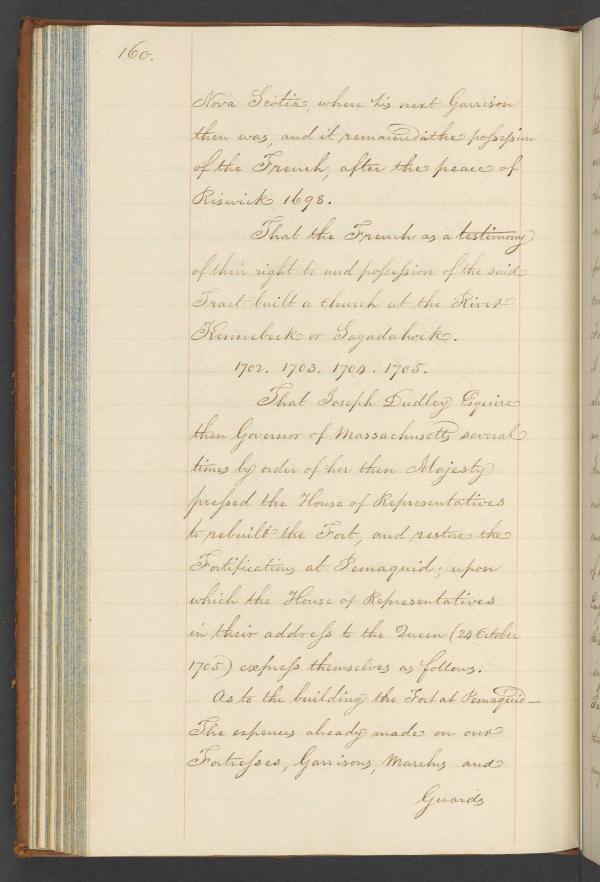 160.
Nova Scotia, where his next Garrison
then was, and it remained in the possession
of the French, after the peace of
Riswick 1698.
That the French as a testimony
of their right to and possession of the said
Tract built a church at the River
Kennebeck or Sagadahock.
1702. 1703. 1704. 1705.
That Joseph Dudley Esquire
then Governor of Massachusetts several
times by order of her then Majesty
pressed the House of Representatives
to rebuild the Fort, and restore the
Fortifications at Pemaquid; upon
which the House of Representatives
in their address to the Queen (24 October
1705) express themselves as follows.
As to the building the Fort at Pemaquid—
The expences already made on our
Fortresses, Garrisons, Marches and
Guards